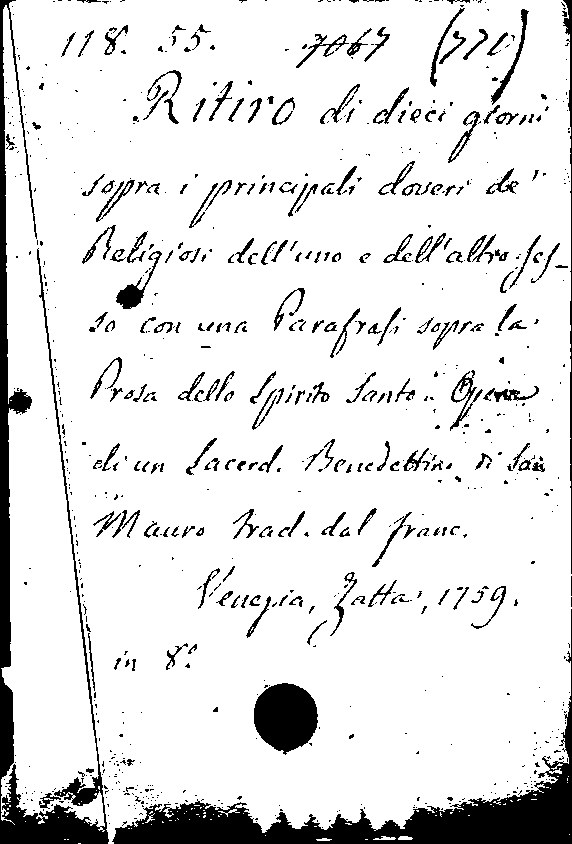 118. 55. 7067 (770)
Ritiro di dieci giorni
sopra i principali doveri de'
Religiosi dell'uno e dell'altro ses-
so con una Parafrasi sopra la
Prosa dello Spirito Santo. Opera
di un Sacerd. Benedettino di San
Mauro trad. dal franc.
Venezia, Zatta, 1759.
in 8.º